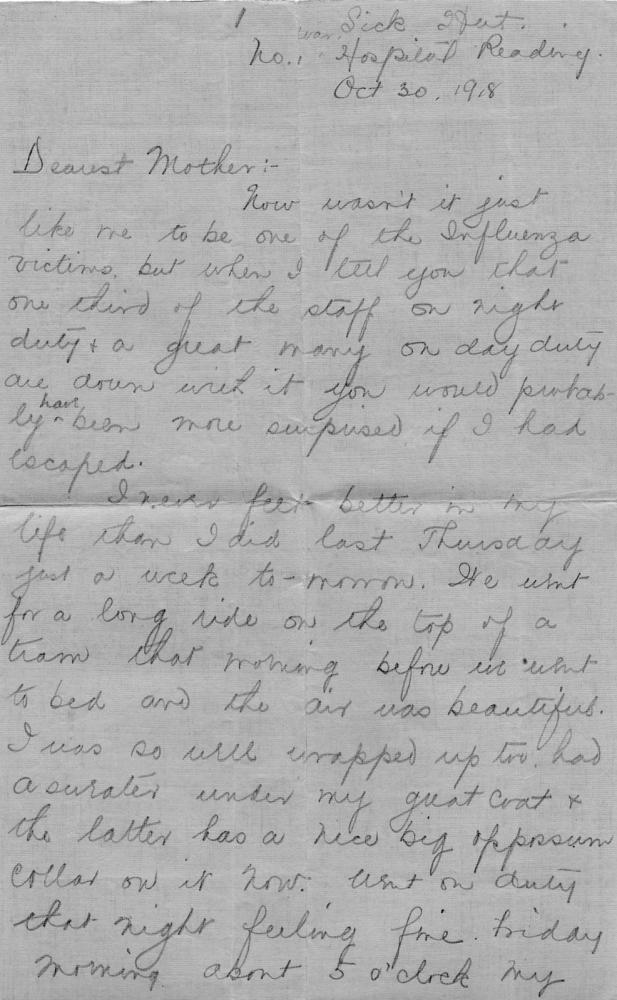 1
Sick Hut.
No. 1 War Hospital Reading.
Oct 30, 1918
Dearest Mother:-
Now wasn't it just
like me to be one of the Influenza
victims, but when I tell you that
one third of the staff on night
duty & a great many on day duty
are down with it you would probab-
ly have been more surprised if I had
escaped.
I never felt better in my
life than I did last Thursday
just a week to-morrow. We went
for a long ride on the top of a
tram that morning before we went
to bed and the air was beautiful.
I was so well wrapped up too, had
a sweater under my great coat &
the latter has a nice big oppossum
collar on it now. Went on duty
that night feeling fine. Friday
morning about 5 o'clock my